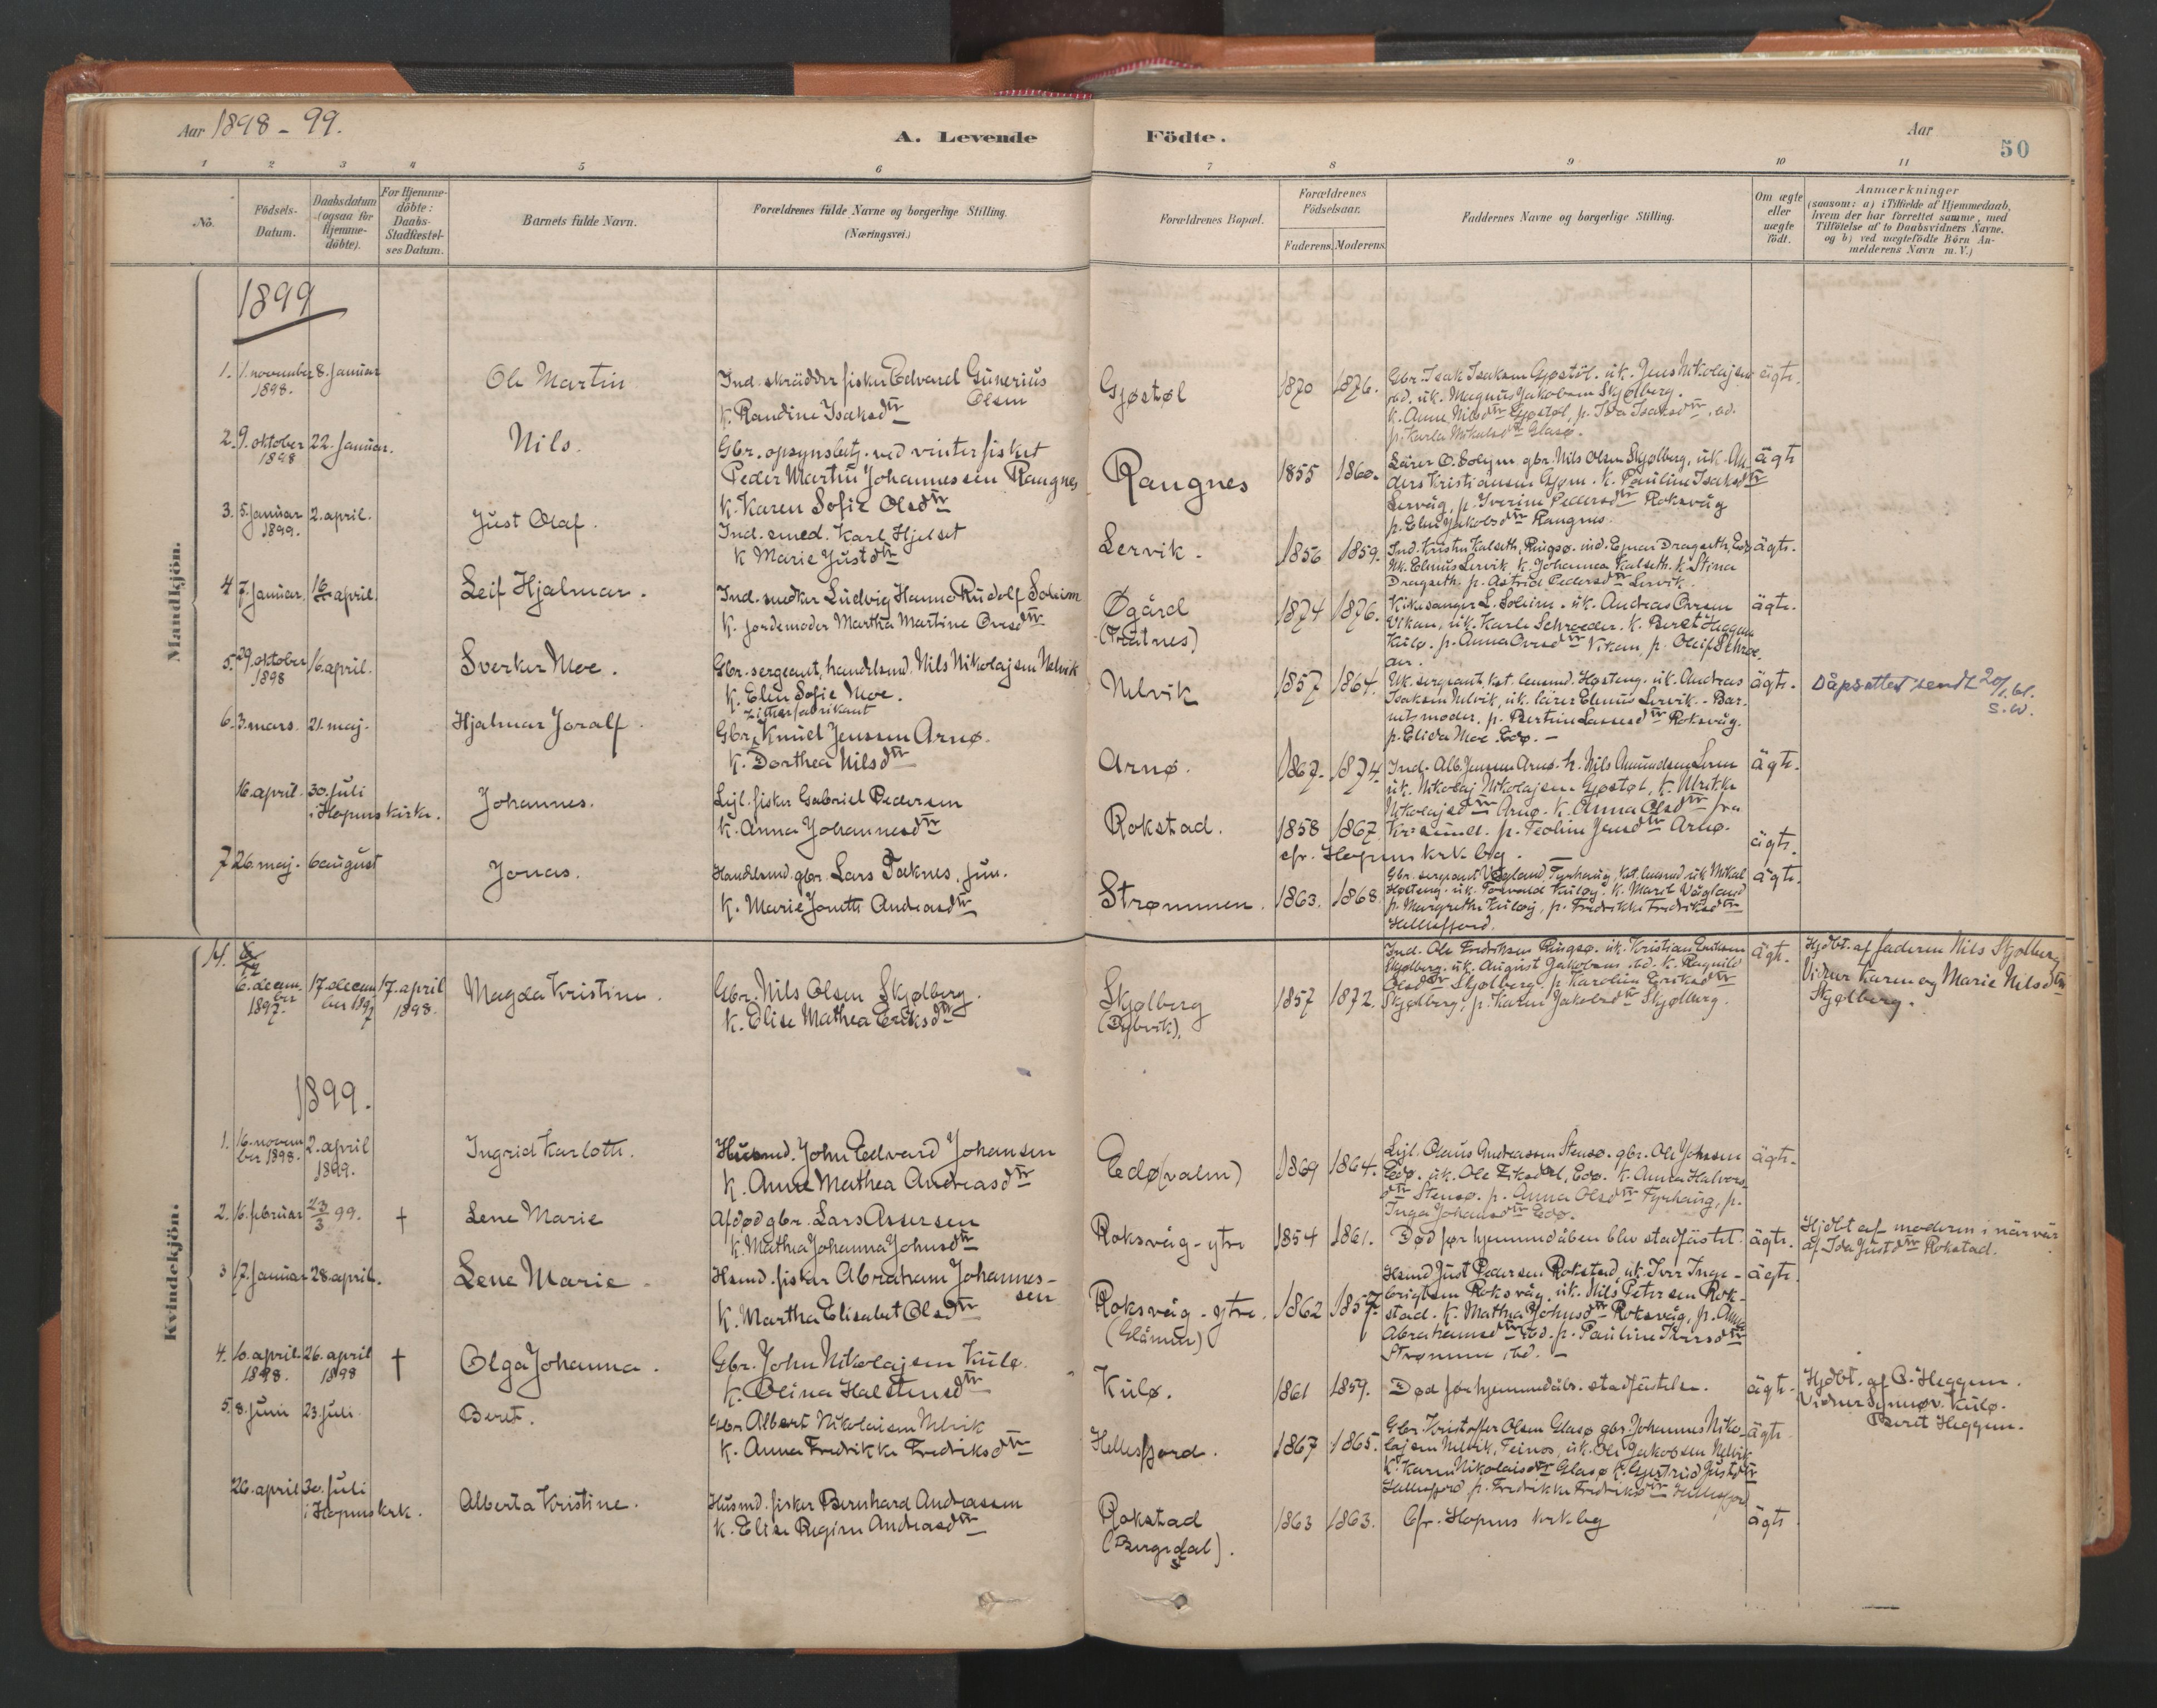 Aar 1898-99.
A. Levende
Födte.
Aar
50
1 2 3 4 5 6 7 8 9 10 11
No.
Födsels-
Datum.
Daabsdatum
(ogsaa for
Hjemme-
döbte).
For Hjemme-
döbte:
Daabs-
Stadfæstel-
ses Datum.
Barnets fulde Navn.
Forældrenes fulde Navne og borgerlige Stilling.
(Næringsvei.)
Forældrenes Bopæl.
Forældrenes
Födselsaar.
Faderens. Moderens.
Faddernes Navne og borgerlige Stilling.
Om ægte
eller
uægte
födt.
Anmærkninger
(saasom: a) i Tilfælde af Hjemmedaab,
hvem der har forrettet samme, med
Tilföielse af to Daabsvidners Navne.
og b) ved uægtefödte Börn An-
melderens Navn m. V.)
Mandkjön.
1899
1. 1. november 8. januar
1898.
Ole Martin
Ind. skrädder fisker Edvard Gunerius
Olsen
k. Randine Isaksdtr
Gjøstøl
1870 1876.
Gbr. Isak Isaksen Gjøstöl. uk. Jens Nikolajsen
ibd. uk. Magnus Jakobsen Skjølberg.
k. Anne Nilsdtr Gjøstøl, p. Ida Isaksdtr, ibd.
p. Karla Mikalsdtr Glasø.
ägte.
2. 9. oktober 22. januar.
1898
Nils.
Gbr. opsynsbetj. ved vinterfisket
Peder Martin Johannessen Rangnes
k. Karen Sofie Olsdtr
Rangnes
1855 1860.
Lärer O. Solejm. gbr. Nils Olsen Skjølberg, uk. An-
ders Kristiansen Gjøm. k. Pauline Isaksdtr
Lervåg, p. Iverine Pedersdtr Roksvåg
p. Elen Jakobsdtr Rangnes.
ägte
3. 5. januar 2. april.
1899.
Just Olaf.
Ind. smed. Karl Hjelset
k Marie Justsdtr
Lervik.
1856 1859.
Ind. Kristen Kalseth, Ringsø. ind. Ejnar Dragseth, Edø
uk. Elenius Lervik, k. Johanna Kalseth. k. Stina
Dragseth. p. Astrid Pedersdtr Lervik.
ägte.
4 7. januar. 16 april.
Leif Hjalmar.
Ind. snedker Ludvig Hanno Rudolf Soleim
k. jordemoder Martha Martine Ovesdtr
Øgård
(Trätnes)
1874 1876.
Kirkesanger L. Soleim. uk. Andreas Ovesen
Vikan, uk. Karle Schrøeder. k. Beret Heggem
Kulø. p. Anna Ovesdtr Vikan p. Oleif Schrøe-
der.
ägte.
5. 29. oktober 16. april.
1898
Sverker Moe.
Gbr. sergeant, handelsmd. Nils Nikolajsen Nelvik
k. Elen Sofie Moe.
Nelvik
1857 1864.
Uk. sergeant, kst. lensmd. Høsteng. uk. Andreas
Isaksen Nelvik, uk. lärer Elenius Lervik. - Bar-
nets moder, p. Bertine Lassesdtr Roksvåg.
p. Elida Moe. Edø. -
ägte.
Dåpsattest sendt 20/1.61.
S.W.
6. 3. mars. 21. maj.
Hjalmar Joralf.
Zitherfabrikant
Gbr. Knud Jenssen Arnø.
k. Dorthea Nilsdtr
Arnø.
1867. 1874.
Ind. Alb. Jenssen Arnø. h. Nils Amundsen
uk. Nikolaj Nikolajsen Gjøstøl, k. Ulrikke
Nikolajsdtr Arnø. k. Anna Olsdtr fra
Kr. sund. p. Teoline Jensdtr Arnø.
ägte.
16. april. 30. juli
i Hopens kirke.
Johannes.
Lejl. fisker Gabriel Pedersen
k. Anna Johannesdtr
Rokstad.
1858 1867.
cfr. Hopens krk. bog.
ägte.
7 26. maj. 6 august
Jonas.
Handelsmd. gbr. Lars Taknes. jun.
k. Marie Jonette Andreasdtr
Strømmen.
1863. 1868.
Gbr. sergeant Vågland, Tyrhaug, kst. lensmd. uk Mikal
Høsteng. uk. Torvald Kuløy. k. Marit Vågland
p. Margrethe Kuløy, p. Fredrikke Fredriksdtr
Hellesfjord.
ägte.
Kvindekjön.
14.
6. decem- 17. decem 17. april
ber 1897. ber 1897 1898.
Magda Kristine.
Gbr. Nils Olsen Skjølberg.
k. Elise Mathea Eriksdtr
Skjølberg
(Dybvik).
1857 1872.
Ind. Ole Fredriksen Ringsø. uk. Kristian Eriksen
Skjølberg. uk. August Jakobsen ibd. k. Ragnild
Olsdtr Skjølberg. p. Karoline Eriksdtr
Skjølberg, p. Karen Jakobsdtr Skjølberg.
ägte.
Hjdbt. af faderen Nils Skjølberg
Vidner Karen og Marie Nilsdtr
Skjølberg.
1899.
1. 16. novem 2. april
ber 1898. 1899.
Ingrid Karlotte.
Husmd. John Edvard Johansen
k. Anne Mathea Andreasdtr
Edø (valen)
1869 1864.
Lejl. Olaus Andreassen Stensø. gbr. Ole Johnsen
Edø. uk. Ole Eiksdal, Edø. k. Annea Halvors-
dtr Stensø. p. Anna Olsdtr Tyrhaug, p.
Inga Johansdtr Edø.
ägte.
2. 16. februar 23/3 99. †
Lene Marie
Afdød gbr. Lars Assersen
k. Mathea Johanna Johnsdtr
Roksvåg-ytre
1854 1861.
Død før hjemmedåben blev stadfästet.
ägte.
Hjdbt af moderen i närvär
af Ida Justsdtr Rokstad.
3 17. januar 28. april.
Lene Marie.
Hsmd. fisker Abraham Johannes-
sen
k. Martha Elisabet Olsdtr
Roksvåg-ytre.
(Glåmen)
1862 1857.
Hsmd Just Pedersen Rokstad, uk. Iver Inge-
brigtsen Roksvåg, uk. Nils Petersen Rok-
stad. k. Mathea Johnsdtr Roksvåg, p. Anne
Abrahamsdtr ibd. p. Pauline Iversdtr
Strømmen, ibd. -
ägte.
4. 10. april. 26. april †
1898. 1898
Olga Johanna.
Gbr. John Nikolajsen Kulø
k. Olina Halstensdtr
Kulø.
1861 1859.
Død før hjemmedåbs. stadfästelse.
ägte.
Hjdbt. af B. Heggem.
Vidner Synnøv. Kulø.
Berit Heggem.
5. 8. juni 23. juli
Beret.
Gbr Albert Nikolaisen Nelvik
k. Anna Fredrikke Fredriksdtr
Hellesfjord.
1867 1865.
Gbr. Kristoffer Olsen Glasø gbr. Johannes Niko-
lajsen Nelvik, Teinos, uk. Ole Jakobsen Nelvik
k. Karen Nikolaisdtr Glasø k. Gjertrud Justsdtr
Hellesfjord, p. Fredrikke Fredriksdtr Hellesfjord
ägte.
26. april 30. juli
i Hopens krk.
Alberta Kristine.
Husmd. fisker Bernhard Andreassen
k. Elise Regine Andreasdtr
Rokstad
(Bergsdal).
1863 1863.
Cfr. Hopens krk. bog
ägte